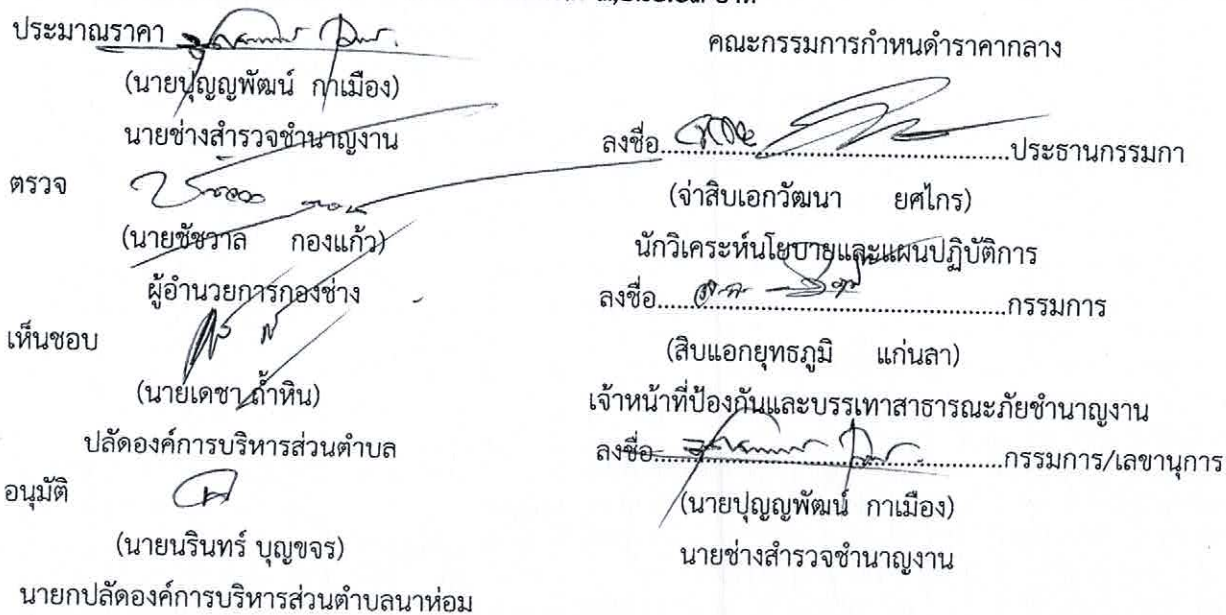 ประมาณราคา
(นายปุญญพัฒน์ กาเมือง)
นายช่างสำรวจชำนาญงาน
ตรวจ
(นายชัชวาล กองแก้ว)
ผู้อำนวยการกองช่าง
เห็นชอบ
(นายเดชา ถ้ำหิน)
ปลัดองค์การบริหารส่วนตำบล
อนุมัติ
(นายนรินทร์ บุญขจร)
นายกปลัดองค์การบริหารส่วนตำบลนาห่อม
คณะกรรมการกำหนดำราคากลาง
ลงชื่อ..................................................ประธานกรรมกา
(จ่าสิบเอกวัฒนา ยศไกร)
นักวิเคระห์นโยบายและแผนปฏิบัติการ
ลงชื่อ..................................................กรรมการ
(สิบแอกยุทธภูมิ แก่นลา)
เจ้าหน้าที่ป้องกันและบรรเทาสาธารณะภัยชำนาญงาน
ลงชื่อ..................................................กรรมการ/เลขานุการ
(นายปุญญพัฒน์ กาเมือง)
นายช่างสำรวจชำนาญงาน